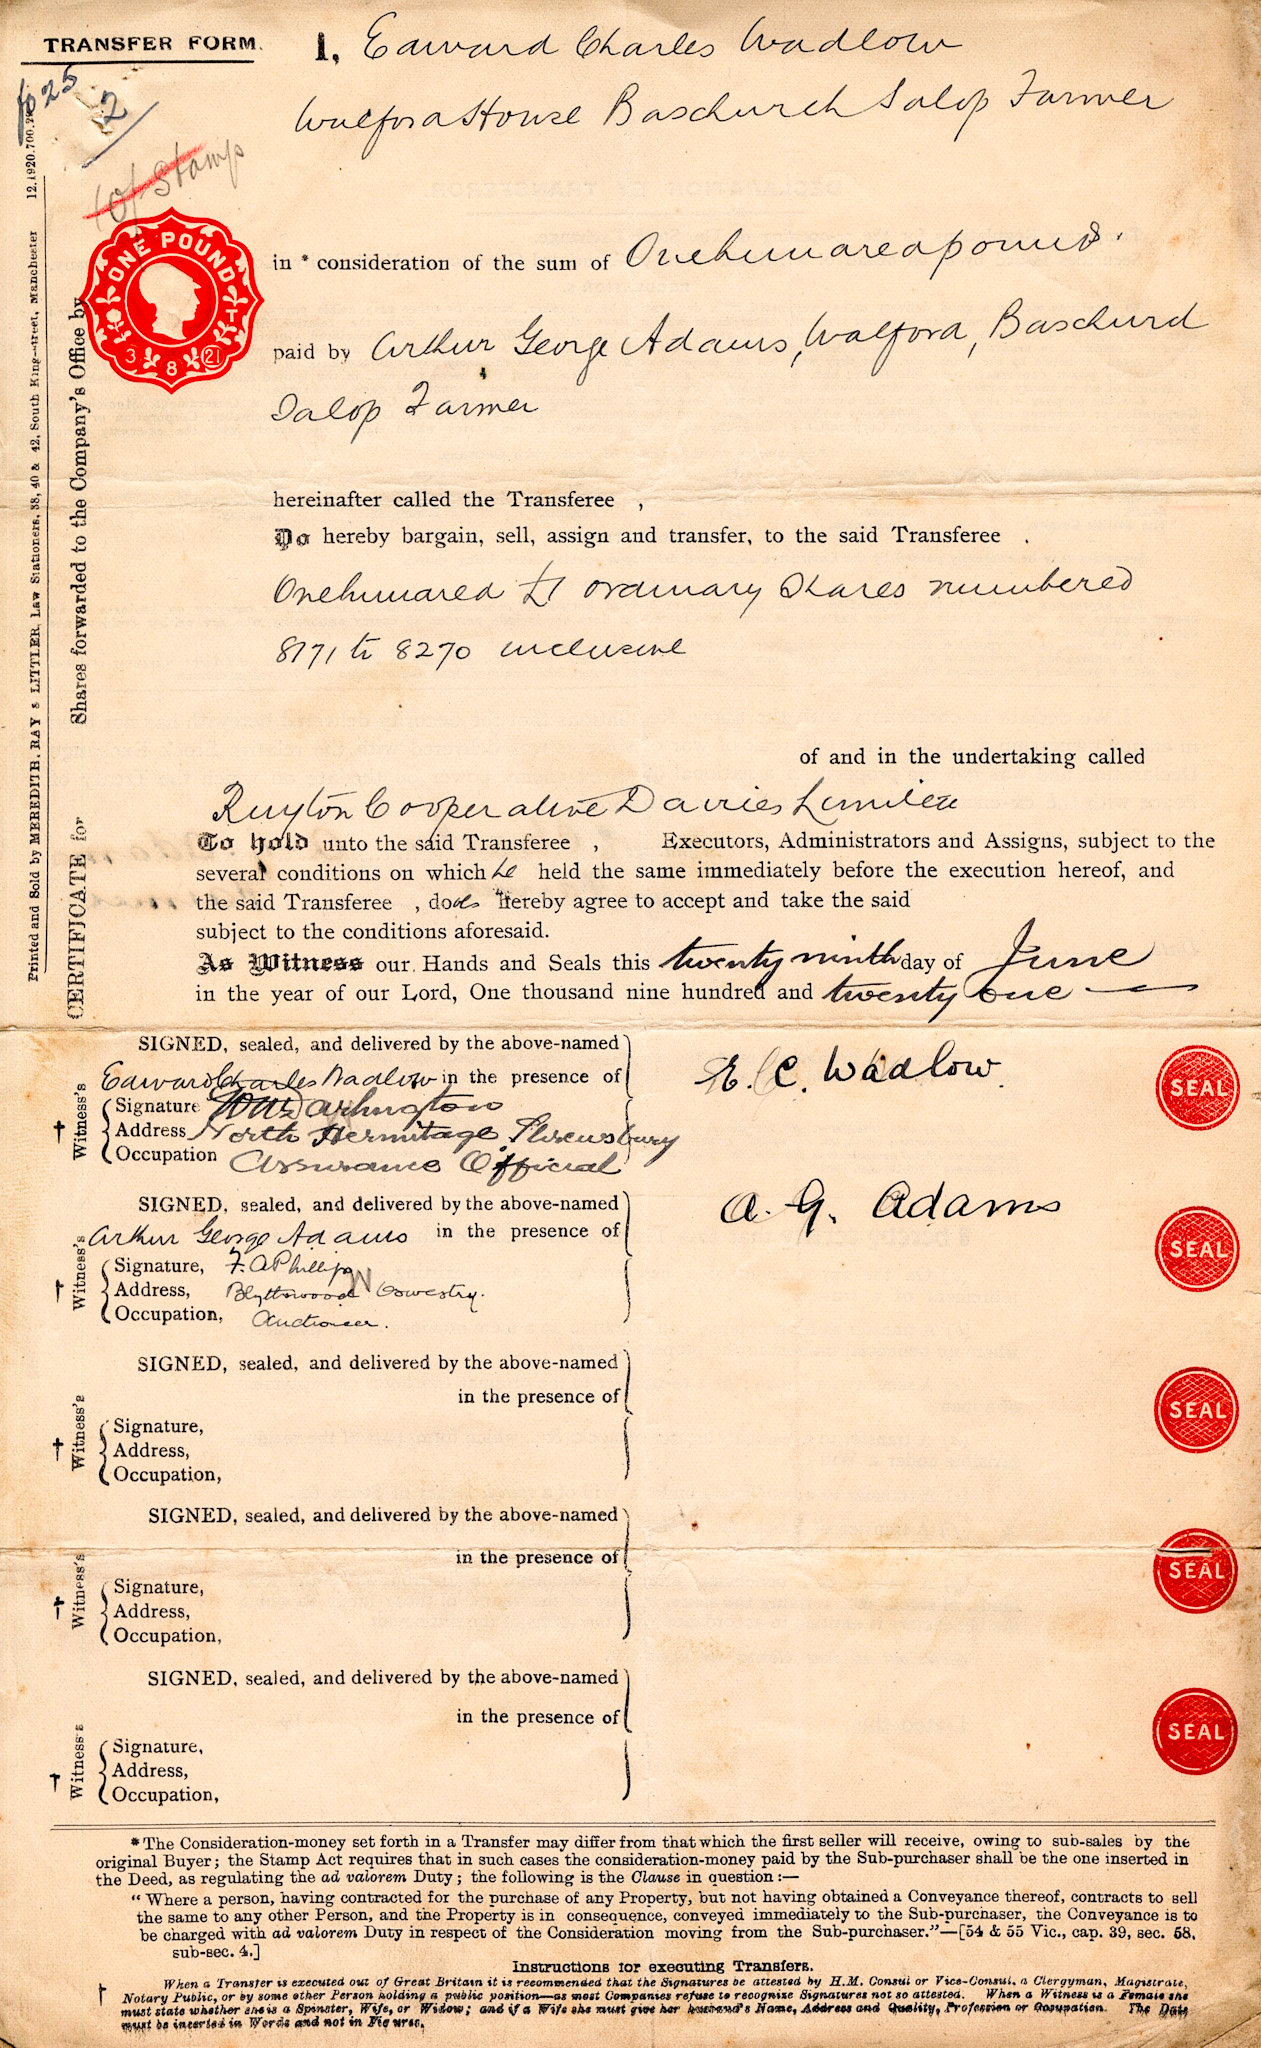 TRANSFER FORM.
fo 25
2
10/ Stamp
I, Edward Charles Wadlow
Walford House Baschurch Salop Farmer
ONE POUND
3 8 21
in * consideration of the sum of One hundred pounds.
paid by Arthur George Adams, Walford, Baschurch
Salop Farmer
hereinafter called the Transferee ,
Do hereby bargain, sell, assign and transfer, to the said Transferee .
One hundred £1 ordinary Shares numbered
8171 to 8270 inclusive
of and in the undertaking called
Ruyton Cooperative Dairies Limited
To hold unto the said Transferee , Executors, Administrators and Assigns, subject to the
several conditions on which he held the same immediately before the execution hereof, and
the said Transferee , does hereby agree to accept and take the said
subject to the conditions aforesaid.
As Witness our Hands and Seals this twenty ninth day of June
in the year of our Lord, One thousand nine hundred and twenty one
SIGNED, sealed, and delivered by the above-named
Edward Charles Wadlow in the presence of
E. C. Wadlow
SEAL
† Witness's
Signature Darlington
Address North Hermitage, Shrewsbury
Occupation Assurance Official
SIGNED, sealed, and delivered by the above-named
Arthur George Adams in the presence of
A. G. Adams
SEAL
† Witness's
Signature, F. A Phillips
Address, Blythswood Oswestry.
Occupation, Auctioneer.
SIGNED, sealed, and delivered by the above-named
in the presence of
SEAL
† Witness's
Signature,
Address,
Occupation,
SIGNED, sealed, and delivered by the above-named
in the presence of
SEAL
† Witness's
Signature,
Address,
Occupation,
SIGNED, sealed, and delivered by the above-named
in the presence of
SEAL
† Witness's
Signature,
Address,
Occupation,
CERTIFICATE for Shares forwarded to the Company's Office by
Printed and Sold by MEREDITH, RAY & LITTLER, Law Stationers, 38, 40 & 42, South King-street, Manchester 12.1920.700.
*The Consideration-money set forth in a Transfer may differ from that which the first seller will receive, owing to sub-sales by the
original Buyer; the Stamp Act requires that in such cases the consideration-money paid by the Sub-purchaser shall be the one inserted in
the Deed, as regulating the ad valorem Duty; the following is the Clause in question:—
"Where a person, having contracted for the purchase of any Property, but not having obtained a Conveyance thereof, contracts to sell
the same to any other Person, and the Property is in consequence, conveyed immediately to the Sub-purchaser, the Conveyance is to
be charged with ad valorem Duty in respect of the Consideration moving from the Sub-purchaser."—[54 & 55 Vic., cap. 39, sec. 58,
sub-sec. 4.]
Instructions for executing Transfers.
† When a Transfer is executed out of Great Britain it is recommended that the Signatures be attested by H.M. Consul or Vice-Consul, a Clergyman, Magistrate,
Notary Public, or by some other Person holding a public position—as most Companies refuse to recognise Signatures not so attested. When a Witness is a Female she
must state whether she is a Spinster, Wife, or Widow; and if a Wife she must give her husband's Name, Address and Quality, Profession or Occupation. The Date
must be inserted in Words and not in Figures.